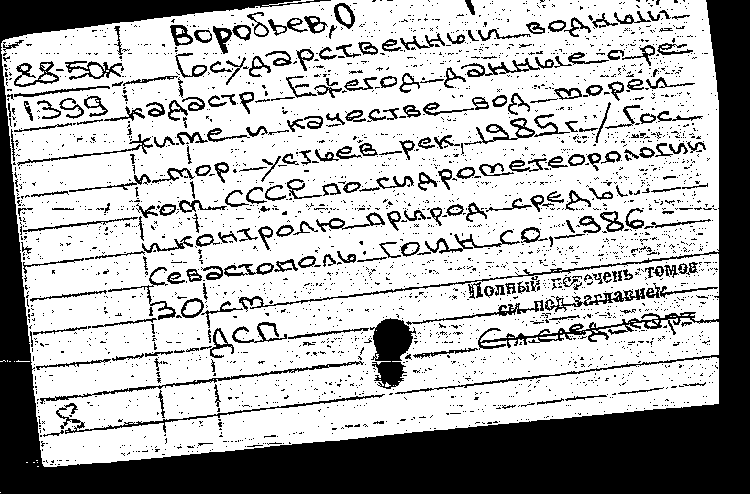 Воробьев, О
88-50К Государственный водный
1399 кадастр: Ежегод. данные о ре-
жиме и качестве вод морей
и мор. устьев рек, 1985 г. / Гос.
ком. СССР по гидрометеорологии
и контролю природ. среды. -
Севастополь: ГОИН СО, 1986. -
30 см.
ДСП.
Полный перечень томов
см. под заглавием
См. след. карт
8